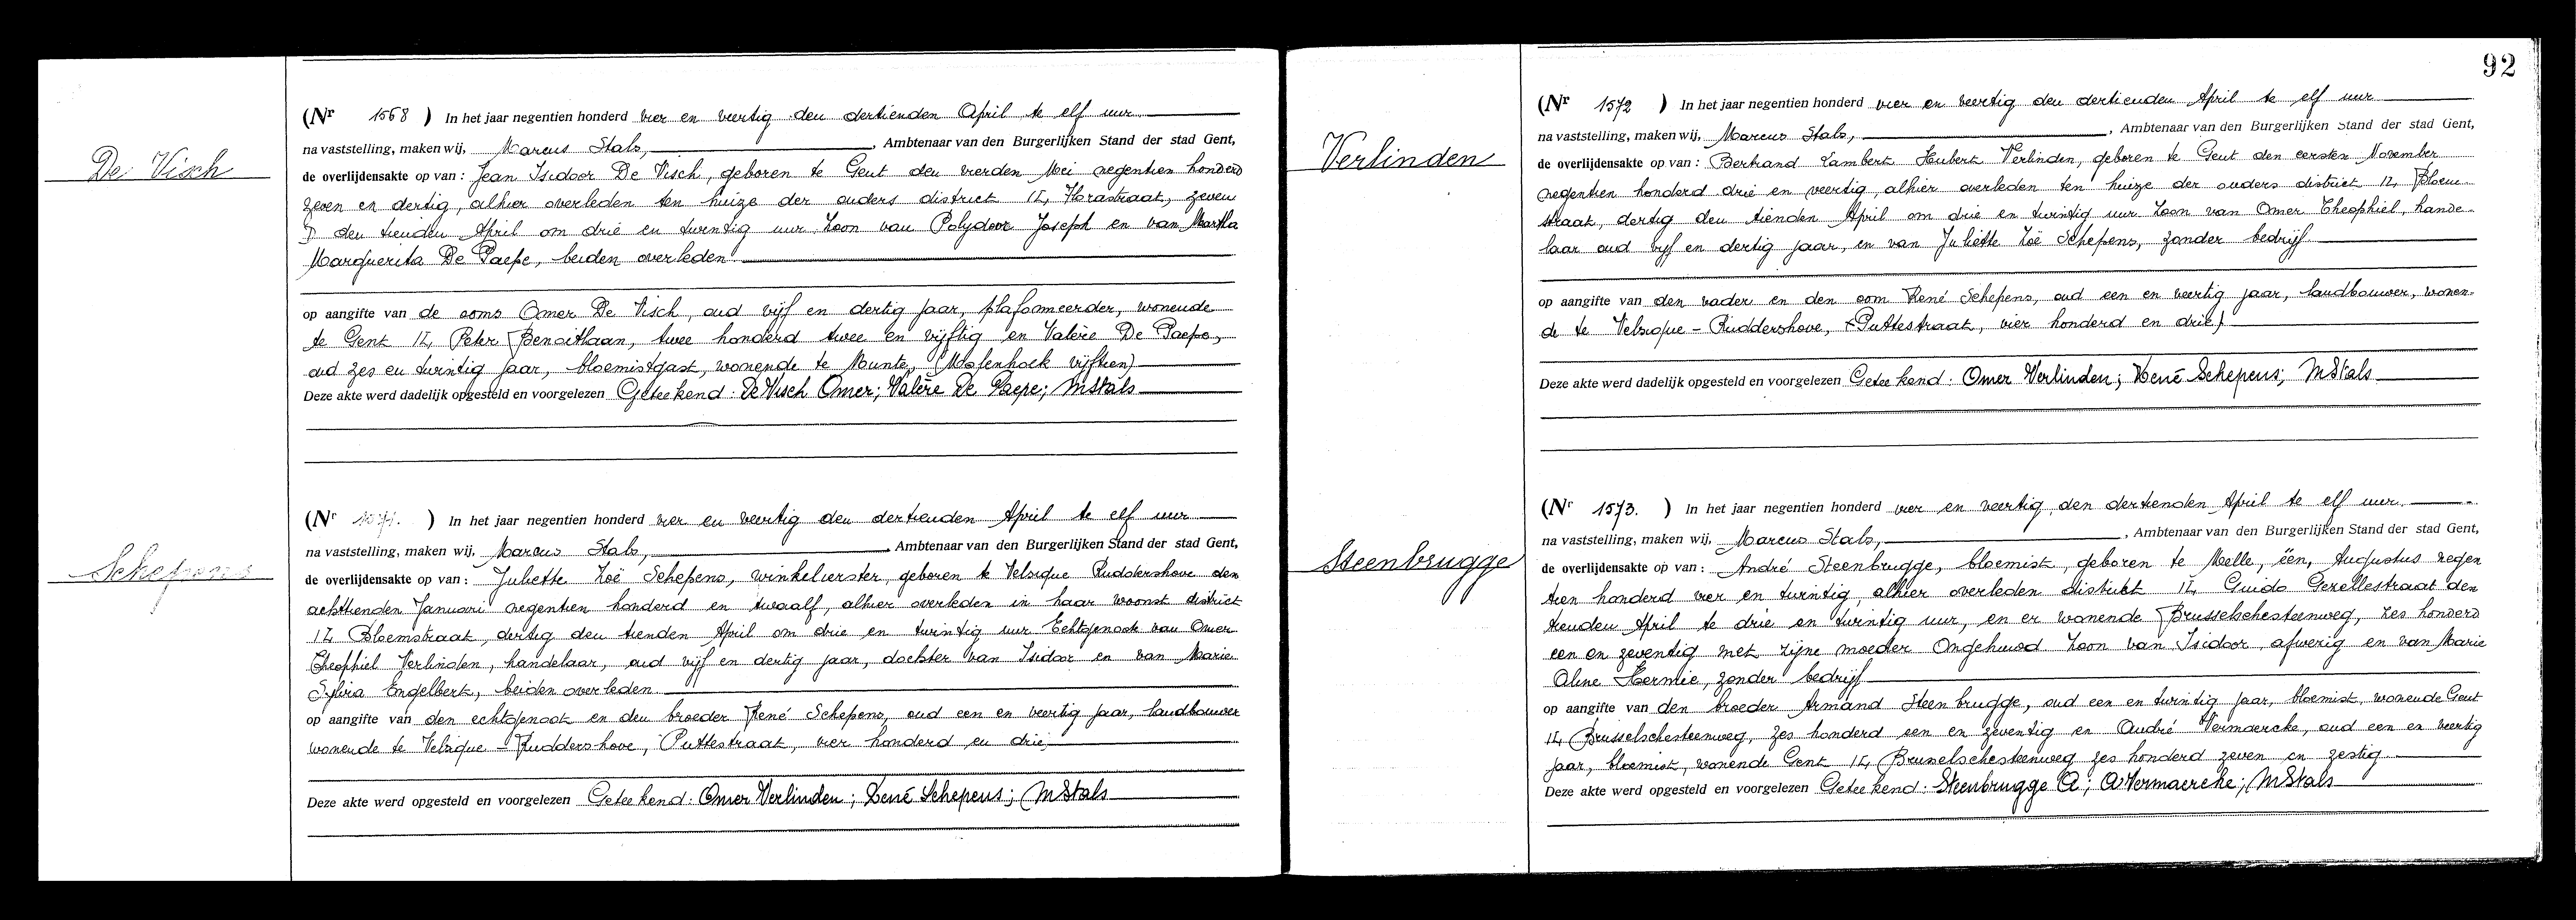 De Visch
(Nr 1568 ) In het jaar negentien honderd vier en veertig den dertienden April te elf uur
na vaststelling, maken wij, Marcus Stals, , Ambtenaar van den Burgerlijken Stand der stad Gent,
de overlijdensakte op van : Jean Isidoor De Visch, geboren te Gent den vierden Mei negentien honderd
zeven en dertig, alhier overleden ten huize der ouders district 14, Florastraat, zeven
den tienden April om drie en twintig uur. Zoon van Polydoor Joseph en van Martha
Marguerita De Paepe, beiden overleden.
op aangifte van de ooms Omer De Visch, oud vijf en dertig jaar, plafonneerder, wonende
te Gent 14, Peter Benoitlaan, twee honderd twee en vijftig en Valère De Paepe,
oud zes en twintig jaar, bloemistgast, wonende te Munte, (Molenhoek vijftien)
Deze akte werd dadelijk opgesteld en voorgelezen Geteekend : De Visch Omer; Valère De Paepe; MStals
Schepens
(Nr 1571. ) In het jaar negentien honderd vier en veertig den dertienden April te elf uur
na vaststelling, maken wij, Marcus Stals, , Ambtenaar van den Burgerlijken Stand der stad Gent,
de overlijdensakte op van : Juliette Zoë Schepens, winkelierster, geboren te Velsique Ruddershove den
achttienden Januari negentien honderd en twaalf, alhier overleden in haar woonst district
14 Bloemstraat, dertig den tienden April om drie en twintig uur Echtgenoot van Omer
Theophiel Verlinden, handelaar, oud vijf en dertig jaar, dochter van Isidoor en van Marie
Sylvia Engelbert, beiden overleden.
op aangifte van den echtgenoot en den broeder René Schepens, oud een en veertig jaar, landbouwer
wonende te Velsique - Ruddershove, Puttestraat, vier honderd en drie,
Deze akte werd opgesteld en voorgelezen Geteekend : Omer Verlinden ; René Schepens ; MStals
92
Verlinden
(Nr 1572 ) In het jaar negentien honderd vier en veertig den dertienden April te elf uur
na vaststelling, maken wij, Marcus Stals, , Ambtenaar van den Burgerlijken Stand der stad Gent,
de overlijdensakte op van : Bertrand Lambert Hubert Verlinden, geboren te Gent den eersten November
negentien honderd drie en veertig, alhier overleden ten huize der ouders district 14, Bloem-
straat, dertig den tienden April om drie en twintig uur. Zoon van Omer Theophiel, hande-
laar oud vijf en dertig jaar, en van Juliette Zoë Schepens, zonder bedrijf
op aangifte van den vader en den oom René Schepens, oud een en veertig jaar, landbouwer, wonen-
de te Velsique - Ruddershove, (Puttestraat, vier honderd en drie)
Deze akte werd dadelijk opgesteld en voorgelezen Geteekend : Omer Verlinden ; René Schepens; MStals
Steenbrugge
(Nr 1573. ) In het jaar negentien honderd vier en veertig, den dertienden April te elf uur.
na vaststelling, maken wij, Marcus Stals, , Ambtenaar van den Burgerlijken Stand der stad Gent,
de overlijdensakte op van : André Steenbrugge, bloemist, geboren te Melle, één, Augustus negen
tien honderd vier en twintig, alhier overleden district 14, Guido Gezellestraat den
tienden April te drie en twintig uur, en er wonende Brusselschesteenweg, zes honderd
een en zeventig met zijne moeder Ongehuwd Zoon van Isidoor, afwezig en van Marie
Aline Hermie, zonder bedrijf
op aangifte van den broeder Armand Steenbrugge, oud een en twintig jaar, bloemist, wonende Gent
14 Brusselschesteenweg, zes honderd een en zeventig en André Vermaercke, oud een en veertig
jaar, bloemist, wonende Gent 14 Brusselschesteenweg zes honderd zeven en zestig
Deze akte werd opgesteld en voorgelezen Geteekend : Steenbrugge A ; A Vermaercke ; MStals